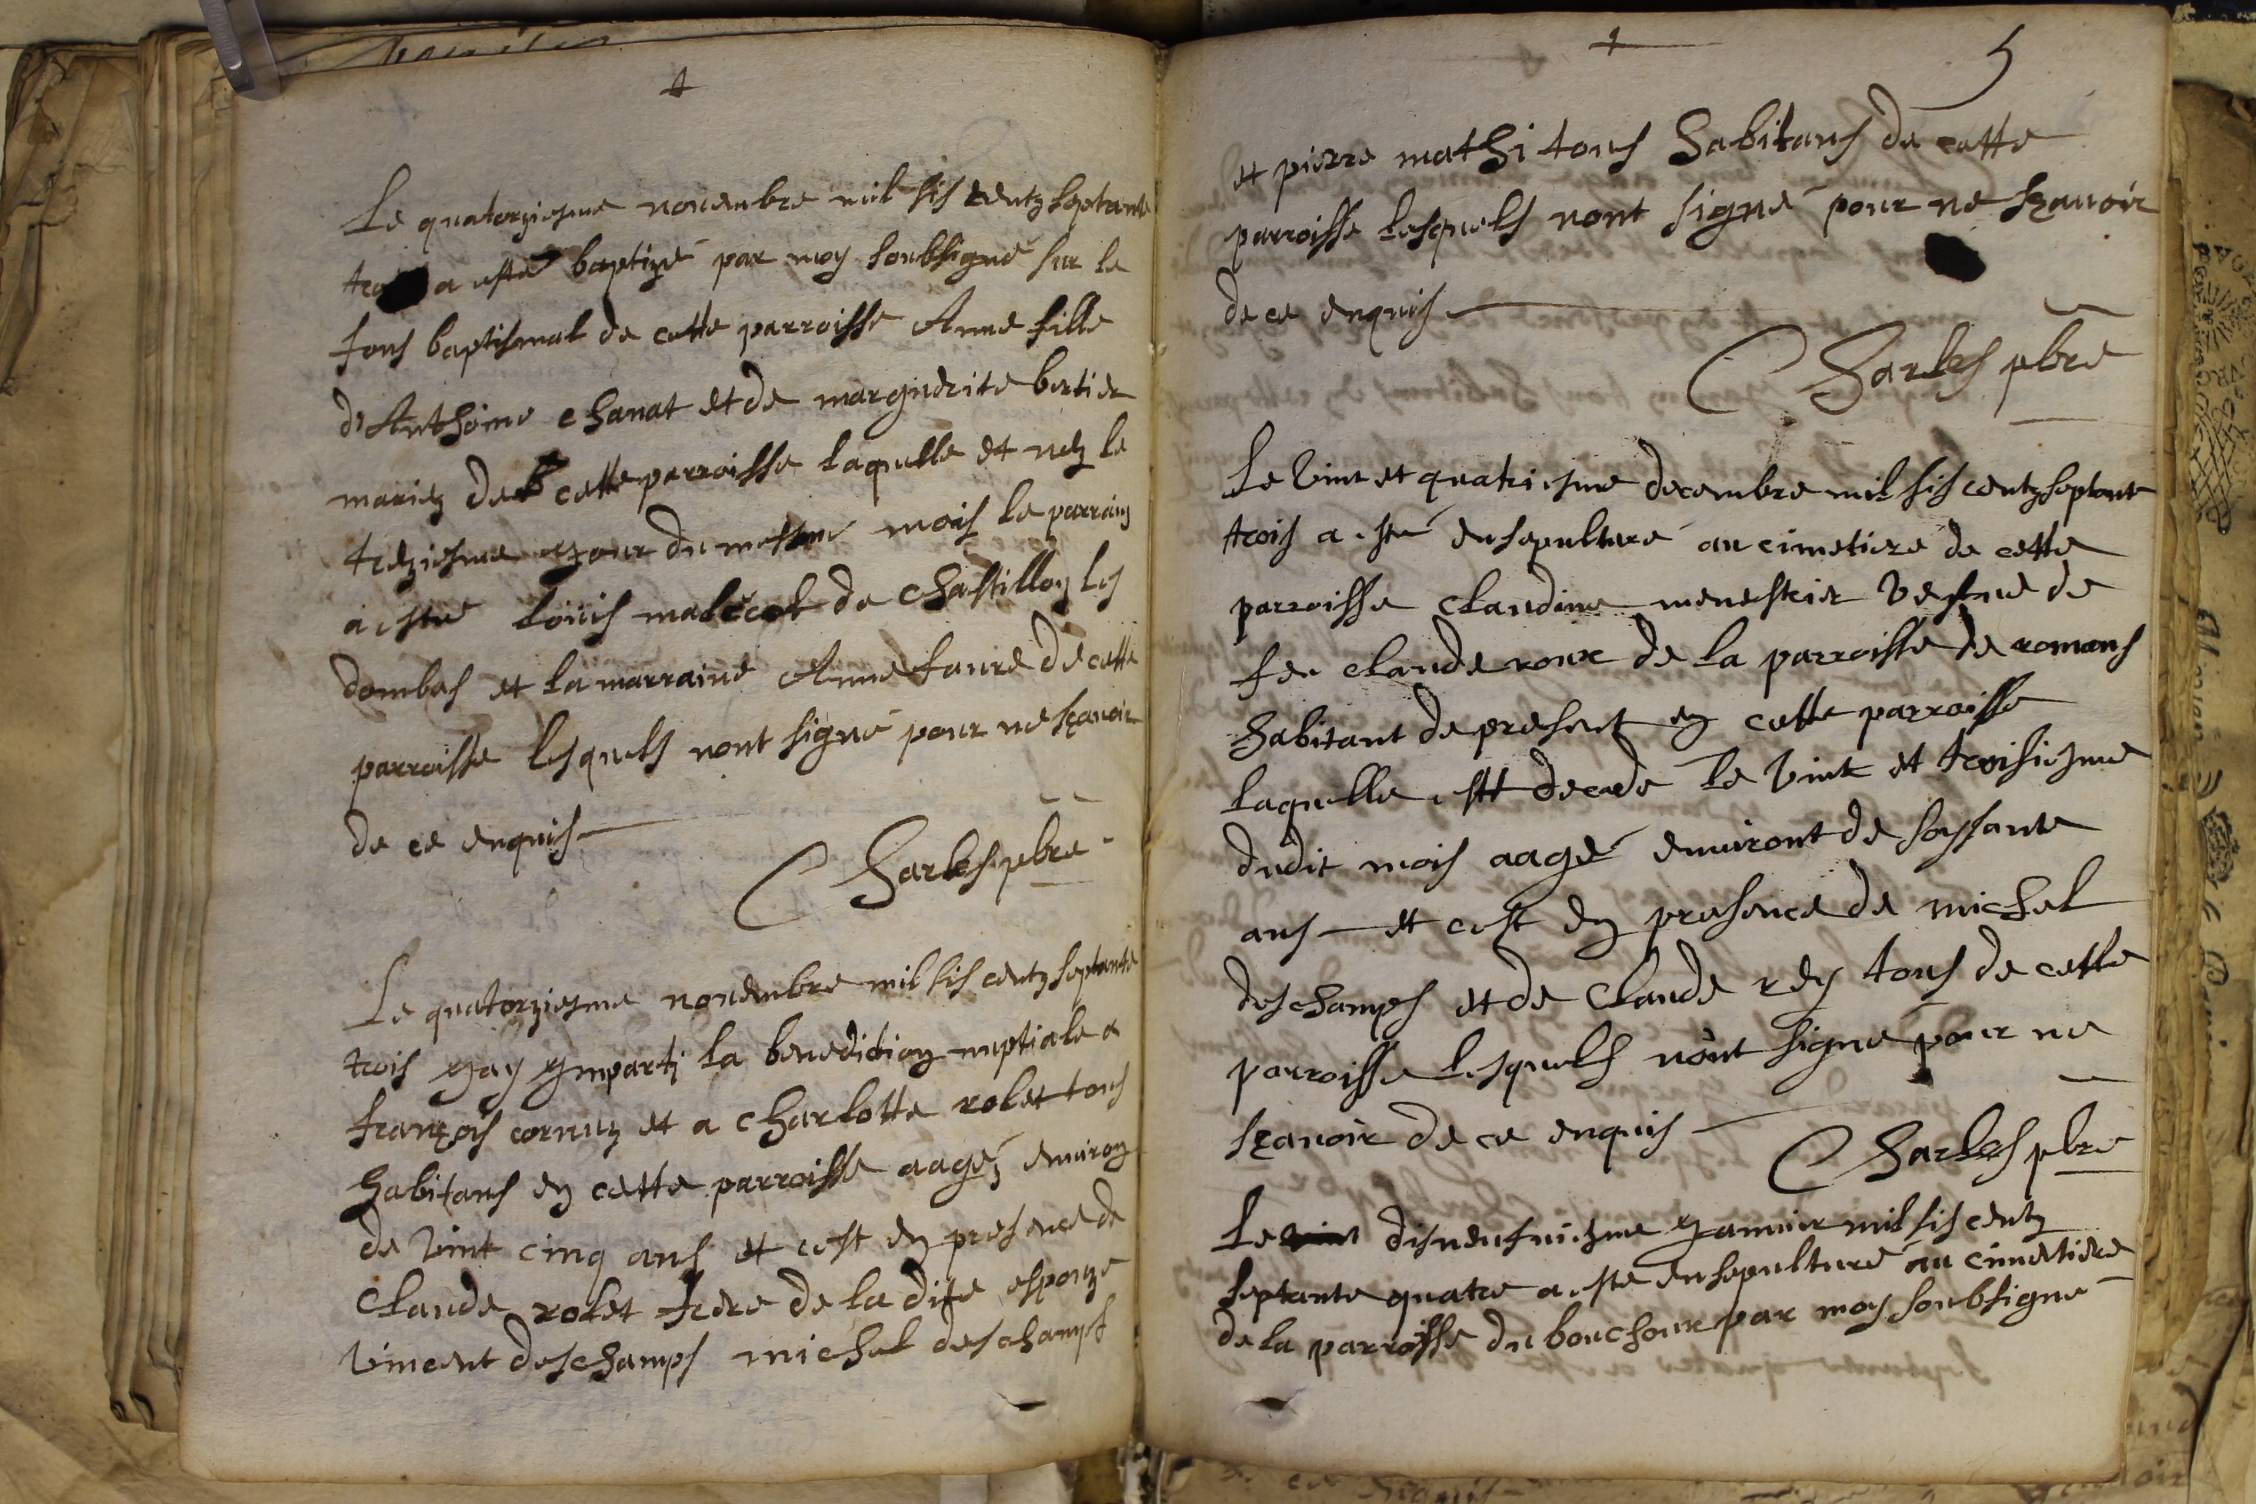 Le quatorziesme novembre mil sis centz septante
a esté baptizé par moy soubsigné sur le
fons baptismal de cette parroisse Anne fille
d'Anthoine chanat et de marguerite bertier
mariez de cette parroisse laquelle et nez le
treziesme jour du mesme mois le parrain
a esté loüis malecot de chastillon les
dombes et la marraine Anne faure de cette
parroisse lesquels nont signé pour ne sçavoir
de ce enquis
Charles pbre
Le quatorziesme novembre mil sis centz septante
trois jay imparti la benediction nuptiale a
françois cornuz et a charlotte rolet tous
habitans en cette parroisse aagez environ
de vint cinq ans et cest en presence de
claude rolet frere de la dite espouze
vincent deschamps michel deschamps
5
et pierre mathi tous habitans de cette
parroisse lesquels nont signé pour ne sçavoir
de ce enquis
Charles pbre
Le vint et quatriesme decembre mil sis centz septante
trois a esté ensepulturé au cimetiere de cette
parroisse claudine menestrier vefve de
feu claude roux de la parroisse de romans
habitant de present en cette parroisse
laquelle estt decede le vint et troisiesme
dudit mois aagé environt de soyssante
ans et cest en presence de michel
deschamps et de claude rey tous de cette
parroisse lesquels nont signé pour ne
sçavoir de ce enquis
Charles pbre
Le vint disneufviesme janvier mil sis centz
septante quatre a esté ensepulturé au cimetiere
de la parroisse du bouchoux par moy soubsigné